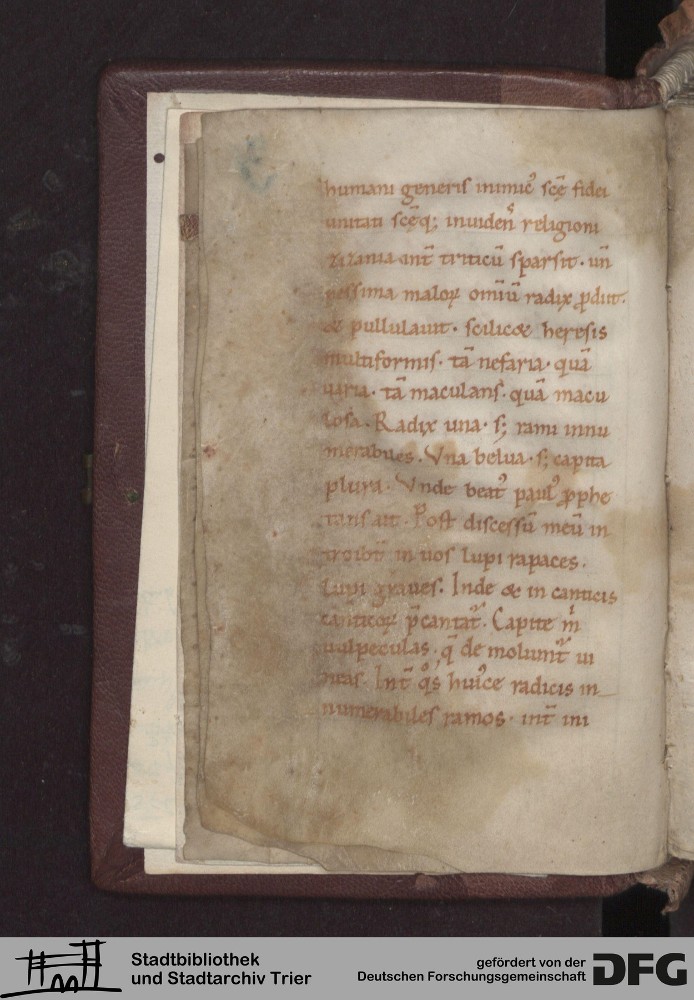 humani generis inimic᾽ scę̄ fidei
unitati scę̄q; inuiden᷒ religioni
zizania int̄ triticū sparsit · un̄
pessima maloꝝ om̄iū radix ꝓdiit.
& pullulauit · scilic& heresis
multiformis · tā nefaria · quā
uaria · tā maculans · quā macu
losa . Radix una · s; rami innu
merabiles . Vna belua · s; capita
plura . Vnde beat᾽ paul᾽ ꝓphe
tans ait . Post discessū meū in
troibt̄ in uos lupi rapaces .
lupi graues . Inde & in canticis
canticoꝝ p̄cantat᷒ . Capite m̄
uulpeculas · q̄ demoliunt᷒ ui
neas . Int̄ q̊s hui᾽ce radicis in
numerabiles ramos · int̄ ini
Stadtbibliothek
und Stadtarchiv Trier
gefördert von der
Deutschen Forschungsgemeinschaft
DFG